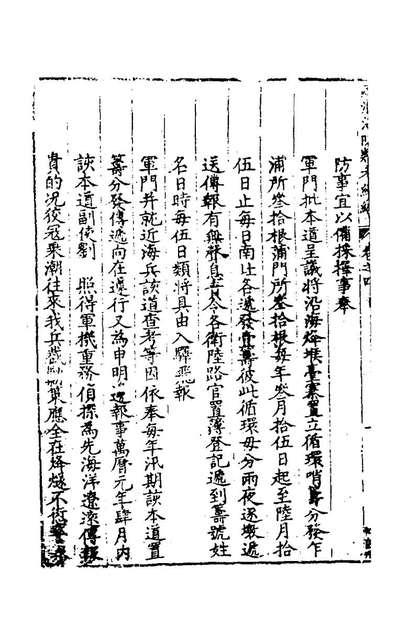 防事宜以備採擇事奉
軍門批本道呈議將沿海烽堠臺寨置立循環哨籌分發乍
浦所叁拾根浦門所叁拾根每年叁月拾伍日起至陸月拾
伍日止每日南北各遞發壹籌彼此循環毋分雨夜逐墩遞
送傳報有無聲息去今各衛陸路官置簿登記遞到籌號姓
名日時每伍日類將具由入驛飛報
軍門并就近海兵該道查考等因依奉每年汛期該本道置
籌分發傳遞向在遵行又為申明 報事萬曆元年肆月内
該本道副使劉 照得軍機重務偵探為先海洋遼遠傳報
貴的況後寇乘潮往來我兵截 策應全在烽燧不